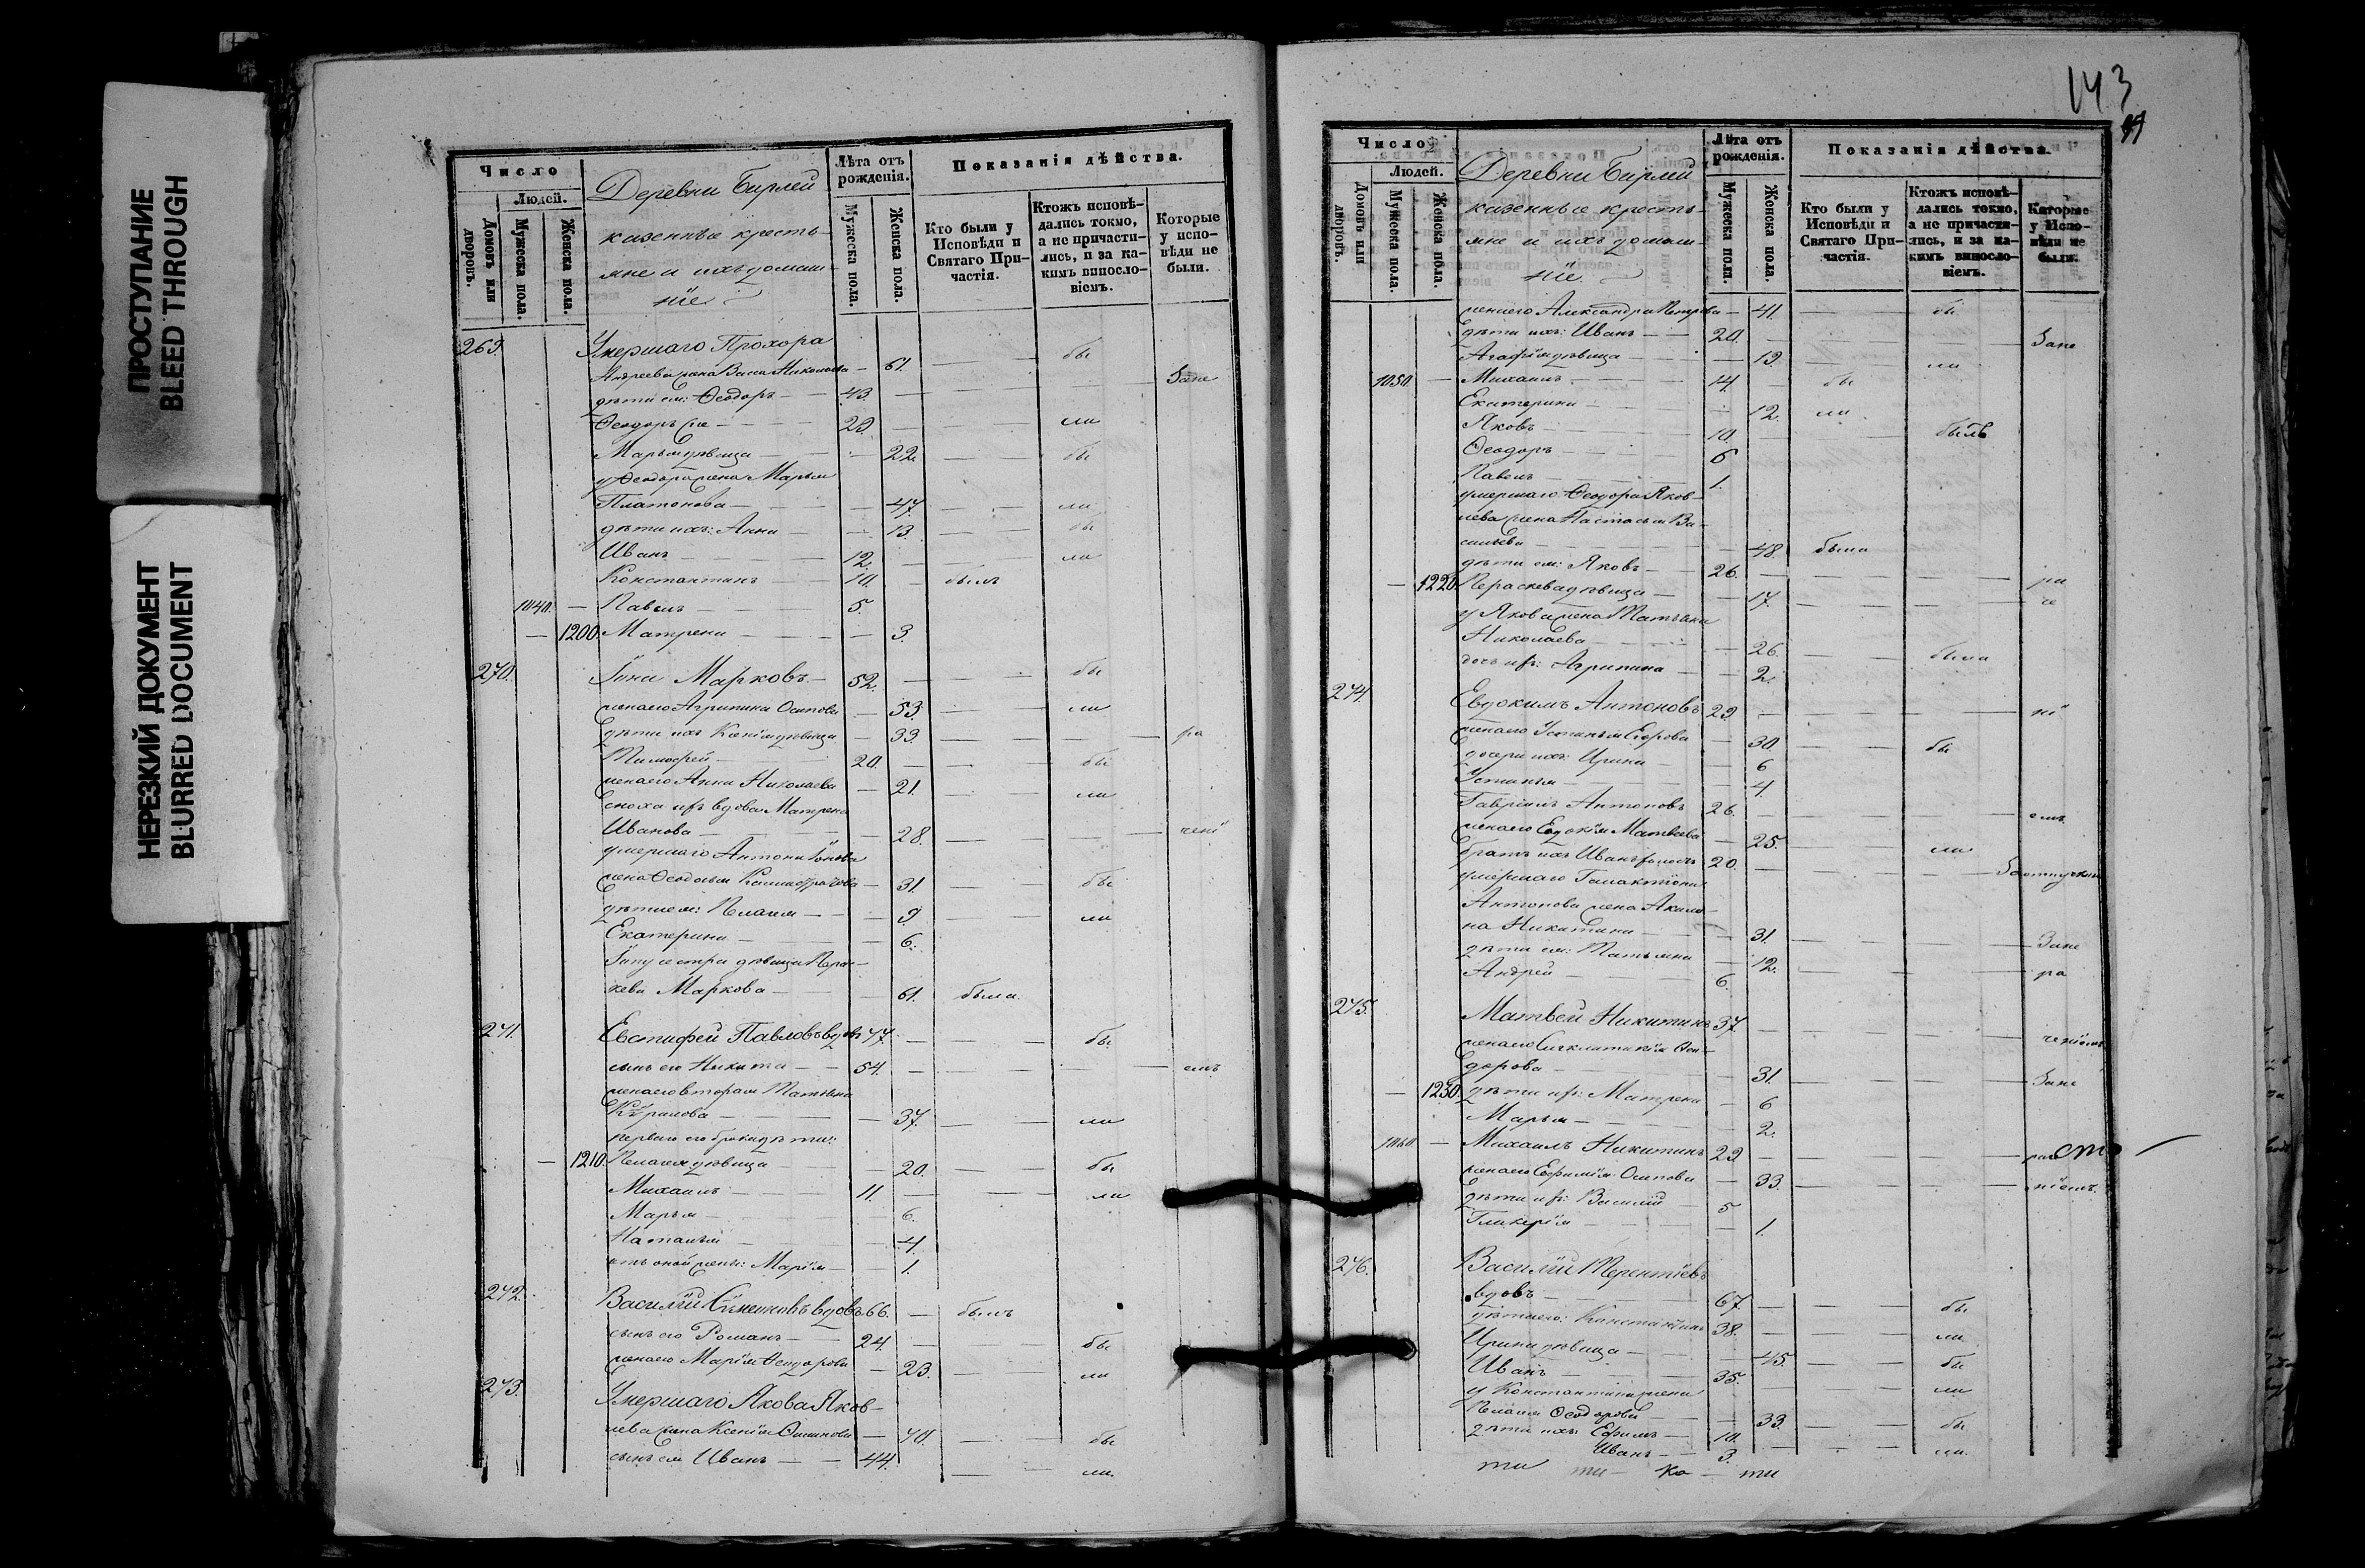 ПРОСТУПАНИЕ
BLEED THROUGH
НЕРЕЗКИЙ ДОКУМЕНТ
BLURRED DOCUMENT
Число
Людей.
Домовъ или дворовъ.
Мужеска пола.
Женска пола.
Деревни Бирлей
казенные кресть-
яне и ихъ домаш-
нiе
Лѣта отъ рожденiя.
Мужеска пола.
Женска пола.
Показанiя дѣйства.
Кто были у Исповѣди и Святаго Причастiя.
Ктожъ исповѣ-
дались токмо,
а не причасти-
лись, и за ка-
кимъ винословiемъ.
Которые у испо-
вѣди не были.
269. Умершаго Прохора
Андреева жена Николаева — 61. — — бы
дѣти ея: Ѳеодоръ — 43. — — — Зане
Ѳеодоръ же — 29. — — ли
Марья дѣвица — 22. — бы
у Ѳеодора жена Марья
Платонова — 47. — — ли
дѣти ихъ: Анна — 13. — бы
Иванъ — 12. — — ли
Константинъ — 10. — былъ
1040. — Павелъ — 5.
— 1200. Матрена — 3.
270. Iона Марковъ — 52. — — бы
жена его Агрипина Осипова — 53. — — ли
дѣти ихъ Ксенiя дѣвица — 33. — — — ра
Тимофей — 20. — — бы
жена его Анна Николаева — 21. — ли
сноха ихъ вдова Матрена
Иванова — 28. — — — ченi
умершаго Антона Iонова
жена Ѳеодосья Калистратова — 31. — — бы
дѣти ея: Пелагея — 9. — ли
Екатерина — 6.
Iону сестра дѣвица Парас-
кева Маркова — 61. была
271. Евстифей Павловъ вдовъ 77. — — бы
сынъ его Никита — 54. — — — емъ
жена его вторая Татьяна
Кирилова — 37. — — ли
перваго его брака дѣти:
— 1210. Пелагея дѣвица — 20. — — бы
Михаилъ — 11. — — ли
Марья — 6.
Наталья — 4.
отъ оной жены: Марiя — 1.
272. Василiй вдовъ 66. — былъ
сынъ его Романъ — 24. — — бы
жена его Марiя Ѳеодорова — 23. — ли
273. Умершаго Якова Яков-
лева жена Ксенiя — 70. — — бы
сынъ ея Иванъ — 44. — — ли.
143
Число
Людей.
Домовъ или дворовъ.
Мужеска пола.
Женска пола.
Деревни Бирлей
казенные кресть-
яне и ихъ домаш-
нiе
Лѣта отъ рожденiя.
Мужеска пола.
Женска пола.
Показанiя дѣйства.
Кто были у Исповѣди и Святаго Причастiя.
Ктожъ исповѣ-
дались токмо,
а не причасти-
лись, и за ка-
кимъ винословiемъ.
Которые у Испо-
вѣди не были.
жена его Александра Петрова — 41. — — бы
дѣти ихъ: Иванъ — 20. — — — Зане
Агафiя дѣвица — 19. — ли
1050. — Михаилъ — 14. — бы
Екатерина — 12. ли
Яковъ — 10. — былъ
Ѳеодоръ — 6
Павелъ — 1.
умершаго Ѳеодора Яков-
лева жена Настасья Ва-
сильева — 48. была
дѣти ея: Яковъ — 26. — — — ра
— 1220. Параскева дѣвица — 17. — — — че
у Якова жена Татьяна
Николаева — 26. — — была
дочь ихъ: Агрипина — 2.
274. Евдокимъ Антоновъ 29. — — — нi
жена его Устинья Егорова — 30. — — бы
дочери ихъ: Ирина — 6
Устинья — 4.
Гаврiилъ Антоновъ 26. — — — емъ
жена его Евдокiя Матвеева — 25. — ли
братъ ихъ Иванъ холостъ 20. — — —
умершаго Галактiона
Антонова жена Акили-
на Никитина — 31. — — — Зане
дѣти ея: Татьяна — 12. — — — ра
Андрей — 6.
275. Матвей Никитинъ 37. — — — ченiемъ
жена его Ѳео-
дорова — 31. — — — Зане
— 1230. дѣти ихъ: Матрена — 6
Марья — 2.
1060. — Михаилъ Никитинъ 29. — — —
жена его Ефимiя Осипова — 33. — — — нiемъ.
дѣти ихъ: Василiй — 5
Гликерiя — 1.
276. Василiй Терентiевъ
вдовъ — 67. — — бы
дѣти его: Константинъ 38. — — ли
Ирина дѣвица — 45. — — бы
Иванъ — 35. — — ли
у Константина жена
Пелагея Ѳеодорова — 33. — — бы
дѣти ихъ: Ефимъ — 10.
Иванъ — 3. — — ли.
ти ти — ка — ти